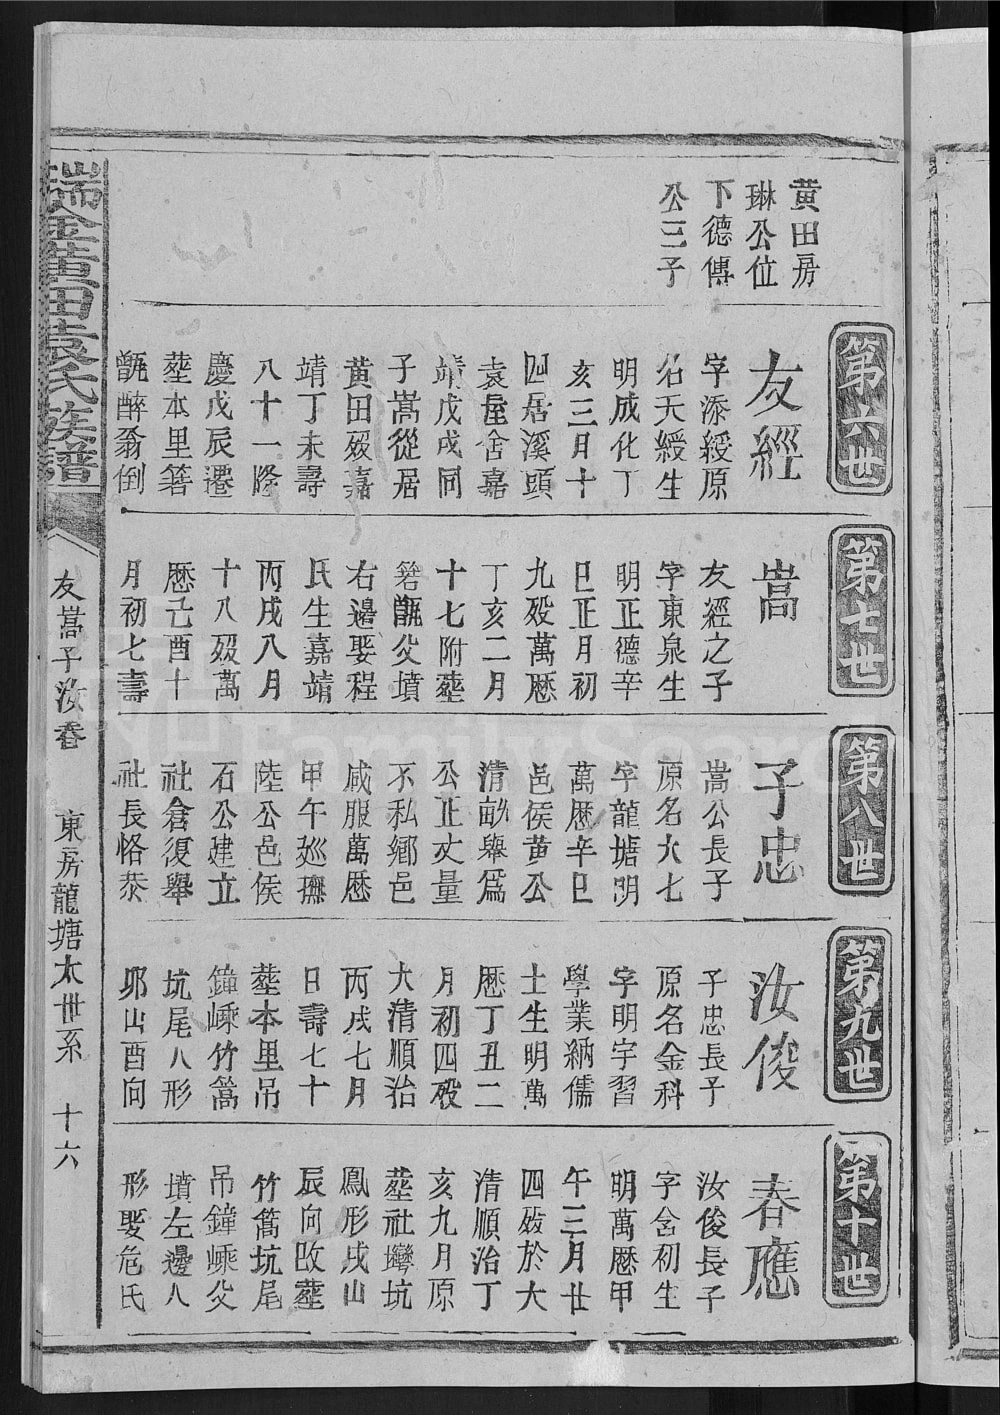 黃田房
琳公位
下德傳
公三子
第六世
友經
字添綬原
名天綬生
明成化丁
亥三月十
四居溪頭
袁屋舍嘉
靖戊戌同
子嵩從居
黃田歿嘉
靖丁未壽
八十一隆
慶戊辰遷
塟本里箬
甑醉翁倒
第七世
嵩
友經之子
字東泉生
明正德辛
巳正月初
九歿萬厯
丁亥二月
十七附塟
箬甑父墳
右邊娶程
氏生嘉靖
丙戌八月
十八歿萬
厯己酉十
月初七壽
第八世
子忠
嵩公長子
原名大七
字龍塘明
萬厯辛巳
邑侯黃公
清畝舉爲
公正丈量
不私鄉邑
咸服萬厯
甲午廵撫
陸公邑侯
石公建立
社倉復舉
社長恪恭
第九世
汝俊
子忠長子
原名金科
字明宇習
學業納儒
士生明萬
厯丁丑二
月初四歿
大清順治
丙戌七月
日壽七十
塟本里吊
鐘嵊竹篙
坑尾八形
夘山酉向
第十世
春應
汝俊長子
字含初生
明萬厯甲
午三月廿
四歿於大
清順治丁
亥九月原
塟社灣坑
鳳形戌山
辰向改塟
竹篙坑尾
吊鐘嵊父
墳左邊人
形娶危氏
瑞金黃田袁氏族譜
友嵩子汝春 東房龍塘太世系 十六
FamilySearch